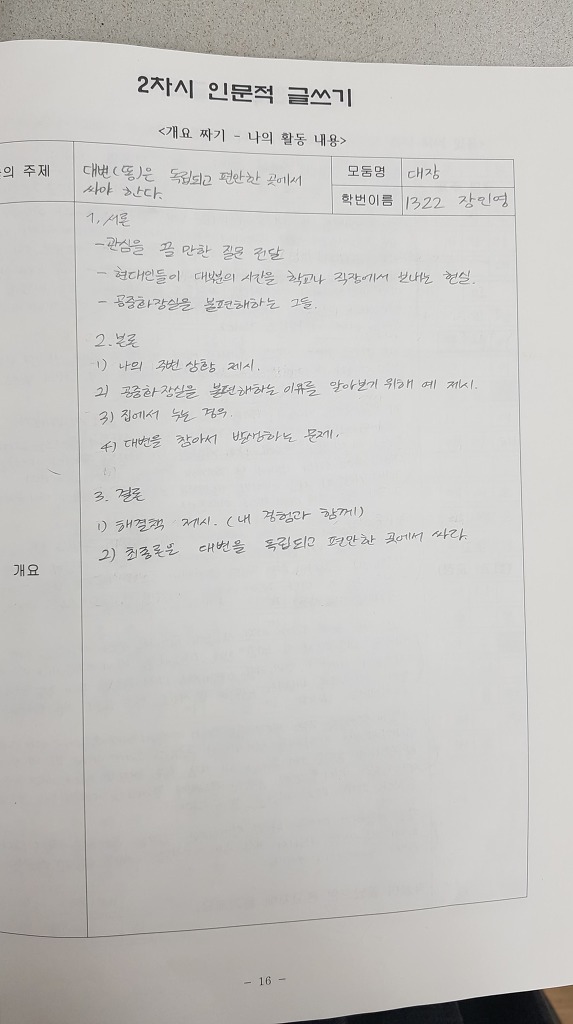 2차시 인문적 글쓰기
<개요 짜기 - 나의 활동 내용>
의 주제
대변(똥)은 독립되고 편안한 곳에서
싸야 한다.
모둠명
대장
학번이름
1322 장인영
1. 서론
- 관심을 끌 만한 질문 전달
- 현대인들이 대부분의 시간을 학교나 직장에서 보내는 현실.
- 공중화장실을 불편해하는 그들.
2. 본론
1) 나의 주변 상황 제시.
2) 공중화장실을 불편해하는 이유를 알아보기 위해 예 제시.
3) 집에서 누는 경우.
4) 대변을 참아서 발생하는 문제.
3. 결론
1) 해결책 제시. (내 경험과 함께)
2) 최종론은 대변을 독립되고 편안한 곳에서 싸라.
개요
- 16 -